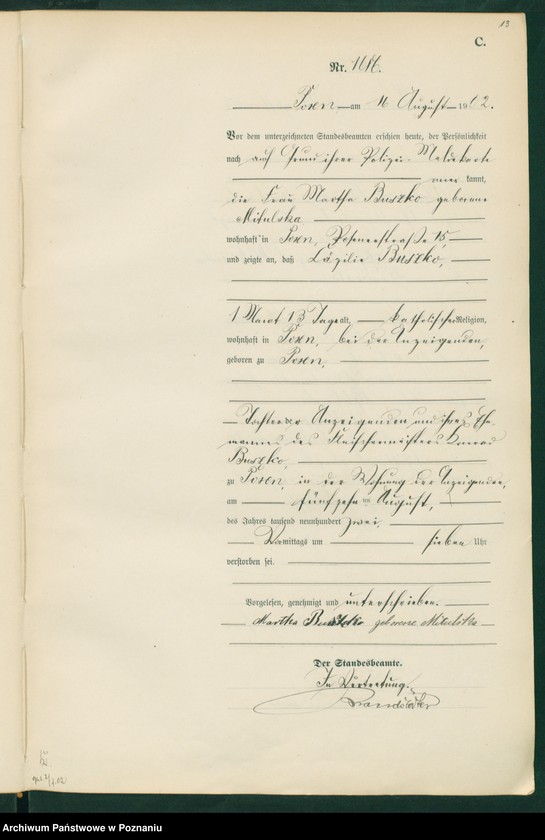 13
C.
Nr. 1616.
Posen am 16 August 1902.
Vor dem unterzeichneten Standesbeamten erschien heute, der Persönlichkeit
nach auf Grund ihrer Polizei-Meldekarte
kannt,
die Frau Martha Buszko geborene
Mikulska
wohnhaft in Posen, Posenerstraße 15,
und zeigte an, daß Cäzilie Buszko,
1 Monat 13 Tage alt, katholischer Religion,
wohnhaft in Posen, bei der Anzeigenden,
geboren zu Posen,
Tochter der Anzeigenden und ihres Ehe-
mannes des Fleischermeisters Konrad
Buszko,
zu Posen, in der Wohnung der Anzeigenden,
am fünfzehn ten August,
des Jahres tausend neunhundert zwei,
Vormittags um sieben Uhr
verstorben sei.
Vorgelesen, genehmigt und unterschrieben.
Martha Buszko geborene Mikulska
Der Standesbeamte.
In Vertretung
Archiwum Państwowe w Poznaniu